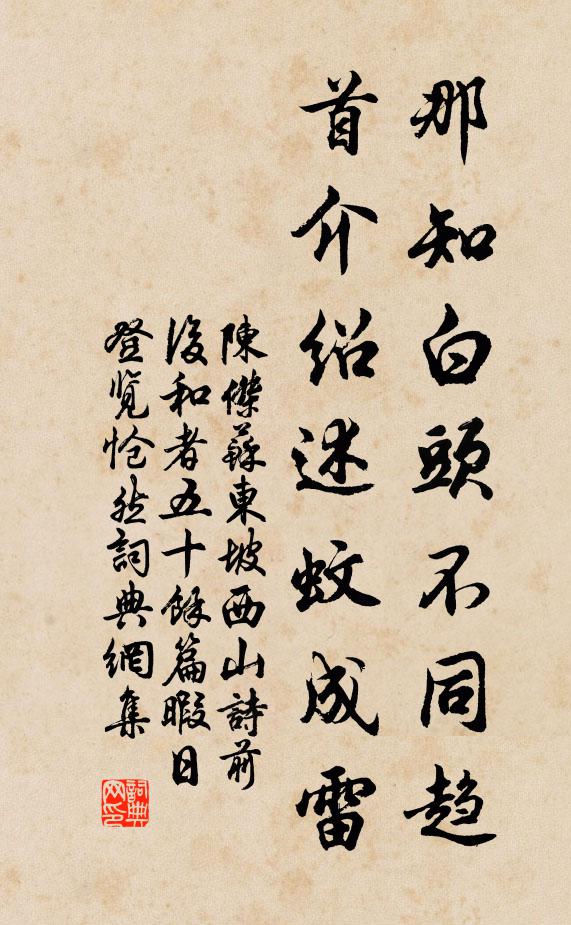 那知白頭不同趋
首介绍述蚊成雷
陳傑蘇東坡西山詩前
後和者五十餘篇暇日
登覽怆然詞典網集
詞典网印